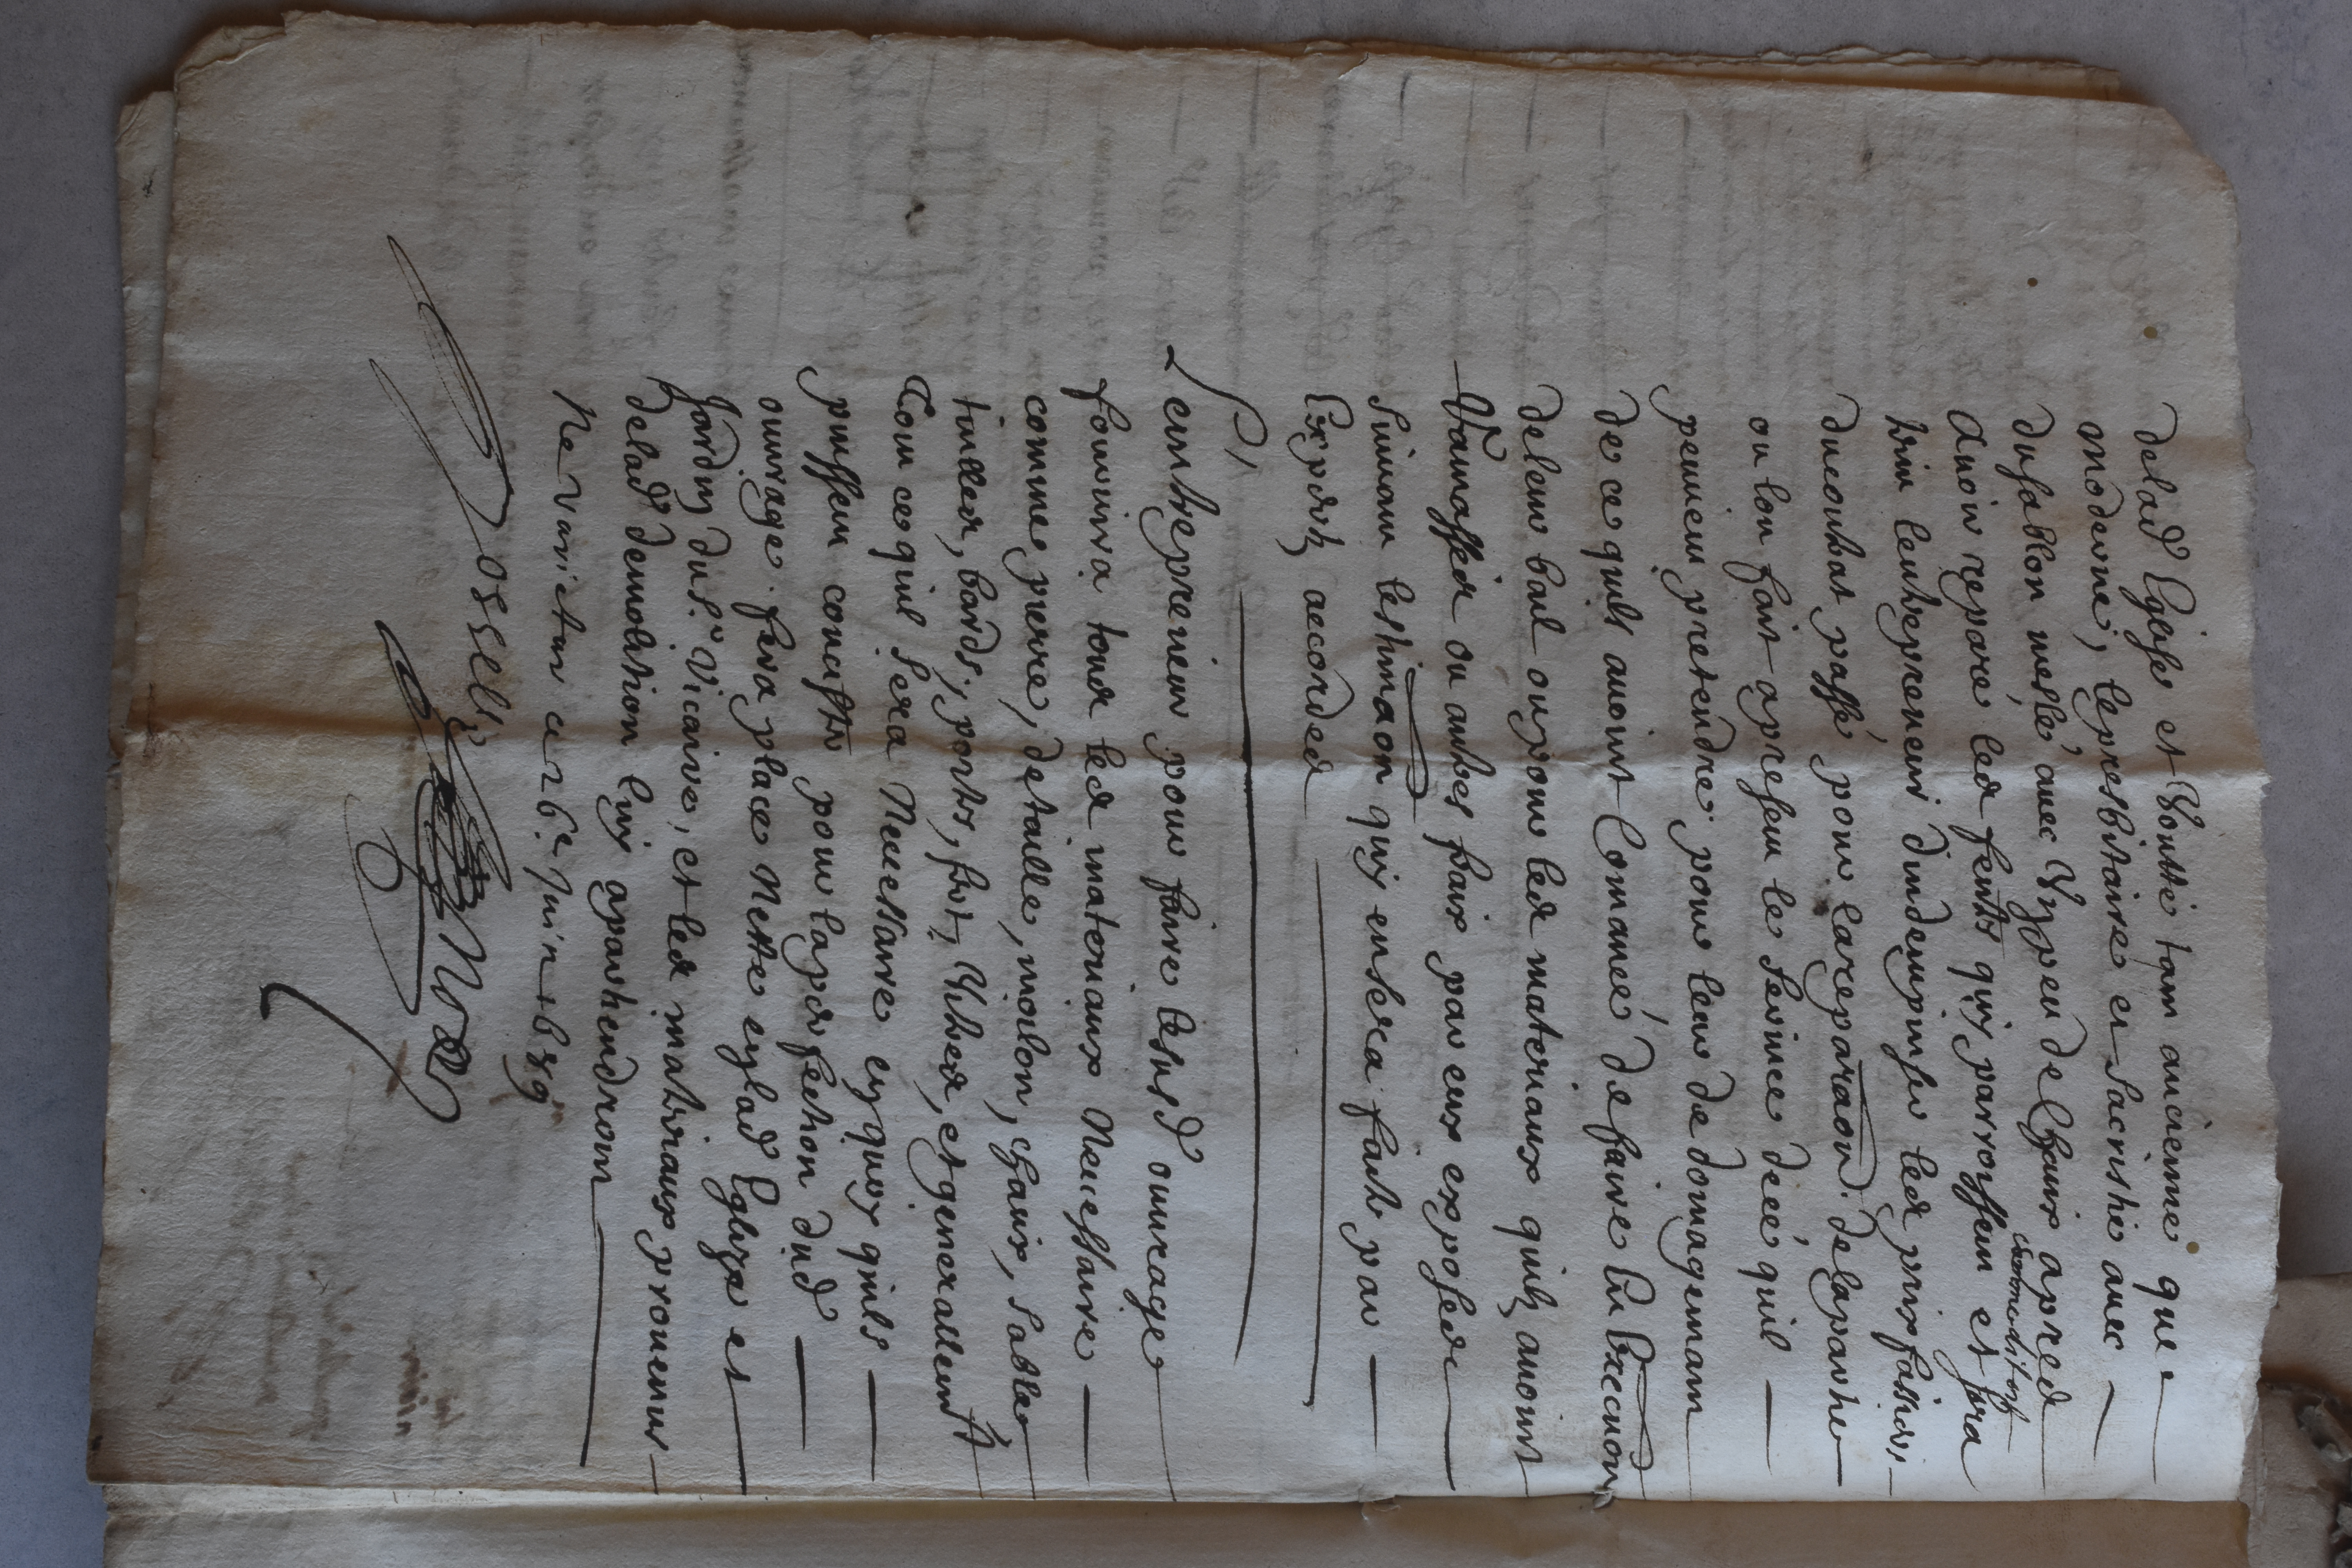 delad Eglise et Voutte tant ancienne que
moderne, le presbitaire et Sacristie avec
du sablon meslé avec Un peu de Chaux apres
comme dit est
Avoir reparé les fentes quy parroissent et fera
led entrepreneur
du contrat passé pour la reparaon de la partie
ou lon fait apresent le Service deé quil
peuvent pretendre pour leur de domagemant
de ce quils avoint Comancé de faire En Execuon
de leur bail ou pour les materiaux quils avoint
Ramasser ou autres frais par eux exposes
Suivant lestimaon quy en sera faite par
Expertz accordes
Lentrepreneur pour faire lesusd ouvrage
fournira tous les materiaux Necessaire
comme pierre, de taille, moilon, chaux, sable
tuilles, bards, ports, fer, Vitres, et generallement
Tout ce quil sera Necessaire en quoy quils
puissent concister pour la perfection dud
ouvrage fera place Nette en lad Eglize et
Jardin dud Sr Vicaire, et les matiriaux provenus
de lad demolition luy apartiendront
Ne Varietur ce 26e Juin 1689